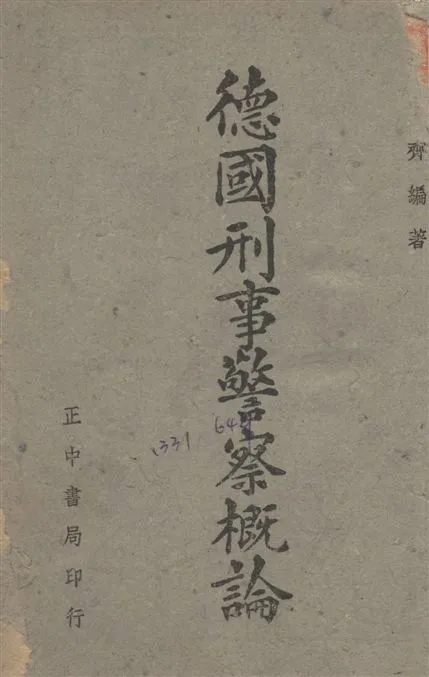 齊編著
德國刑事警察概論
正中書局印行